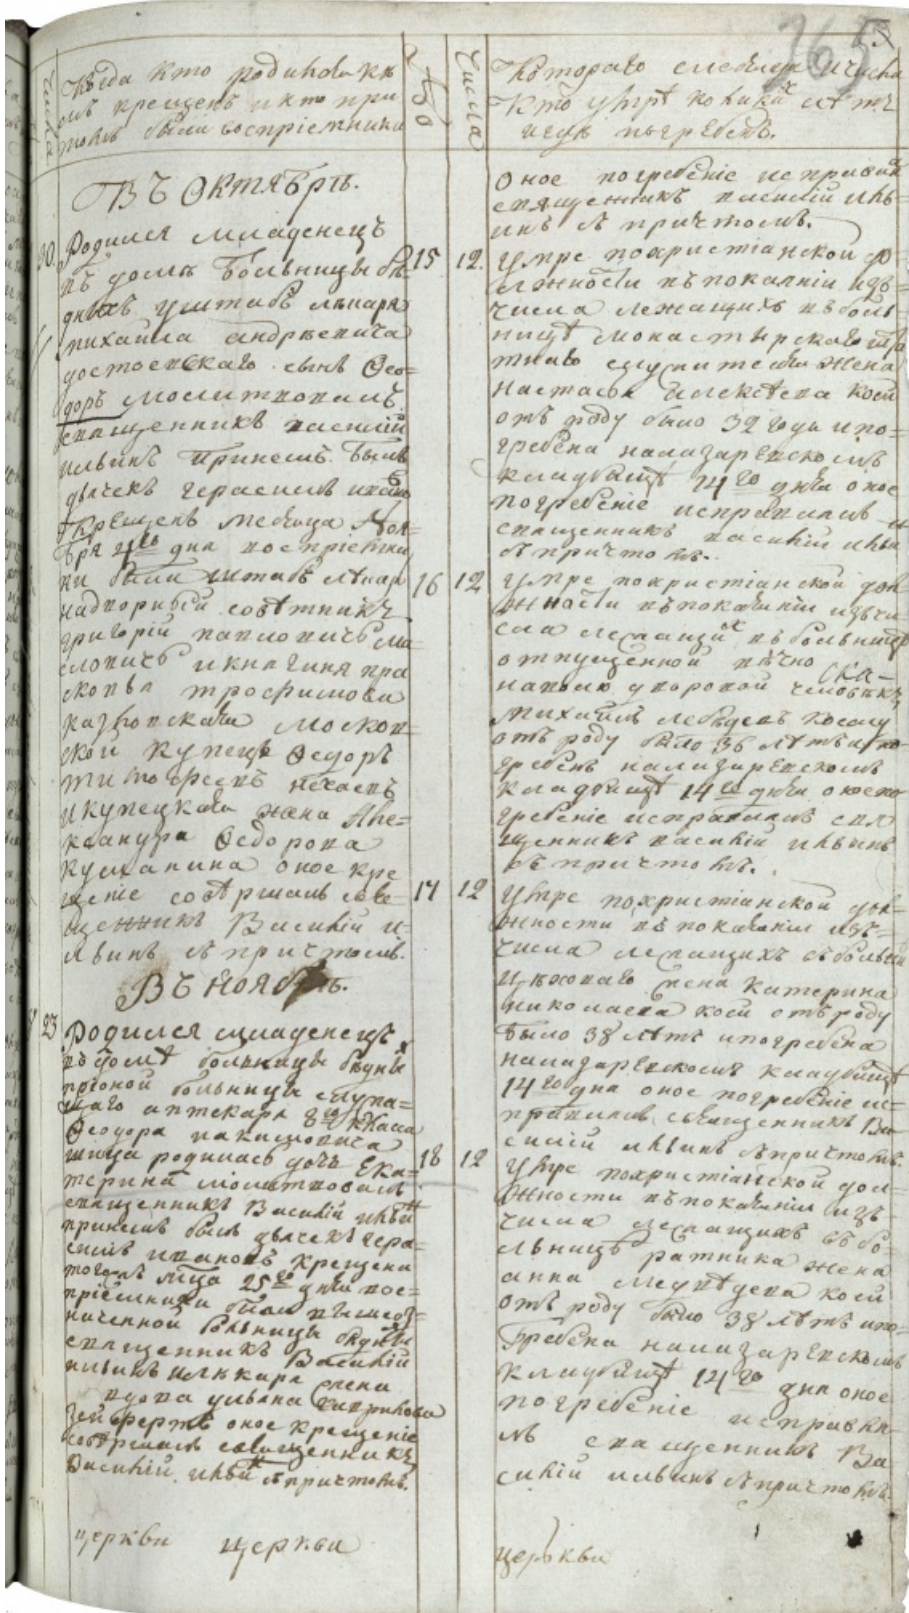 365
Когда кто родился кѣ
мъ крещенъ и кто при
томъ были восприемники
число
Которого месяца и числа
Кто умре коликихъ лѣтъ
и гдѣ погребенъ.
Въ Октябрѣ.
30. Родился младенецъ
въ доме больницы бѣ
дныхъ у штабъ лекаря
михайла андрѣевича
достоевскаго сынъ Ѳео-
доръ молитвовалъ
священникъ василий
ильинъ при немъ былъ
дьячекъ герасимъ иванов
Крещенъ месяца Ноя-
бря 4го дня восприемни
ки были штабъ лекарь
надворный советникъ
григорий павловичь ма-
словичь и княгиня пра
сковья трофимовна
козловская московс
ской купецъ Ѳедоръ
тимофеевъ нечаевъ
и купецкая жена Але=
ксандра Ѳедоровна
куманина оное кре
щение совершалъ свя-
щенникъ Василий и-
льинъ съ причтомъ.
Въ Ноябрѣ.
23 Родился младенецъ
въ домѣ больницы бедных
оной больницы служа=
щаго аптекаря 8го класа
Ѳеодора
родилась дочь Ека=
терина молитвовалъ
священникъ Василий ильин
при немъ былъ дьячекъ гера=
симъ ивановъ крещена
того мѣца 25го дня вос=
приемники были вышеоз=
наченной больницы бедных
священникъ Василий
ильинъ лѣкаря жена
вдова ульяна
оное крещение
совершалъ священникъ
Василий ильинъ съ причтомъ.
церкви церкви
оное погребение исправил
священникъ василий иль=
инъ съ причтомъ.
15 12. Умре похристианской до
лжности въ покаянии изъ=
числа лежащихъ въ боль
ницѣ монастырского шта
тнаго служителя жена
настасья алексеева коей
отъ роду было 32 года и по=
гребена на лазаревскомъ
кладбищѣ 14го дня оное
погребение исправилъ
священникъ василий ильи
съ причтомъ.
16 12 Умре похристианской дол
жности въ покаянии изъ чи
сла лежащихъ въ больницѣ
отпущенной вѣчно
на волю дворовой человѣкъ
михайлъ лебедевъ коему
отъ роду было 36 лѣтъ и по-
гребенъ на лазаревскомъ
кладбищѣ 14го дня оное по
гребение исправилъ свя
щенникъ василий ильинъ
съ причтомъ.
17 12 Умре похристианской дол=
жности въ покаянии изъ=
числа лежащихъ въ больни
жена катерина
николаева коей отъ роду
было 38 лѣтъ и погребена
на лазаревскомъ кладбищѣ
14го дня оное погребение ис=
правилъ священникъ Ва
силий ильинъ съ причтомъ.
18 12 Умре похристианской дол-
жности въ покаянии изъ
числа лежащихъ въ бо-
льницѣ ратника жена
анна медведева коей
отъ роду было 38 лѣтъ и по=
гребена на лазаревскомъ
кладбищѣ 14го дня оное
погребение исправи-
лъ священникъ Ва-
силий ильинъ съ причтомъ.
церкви